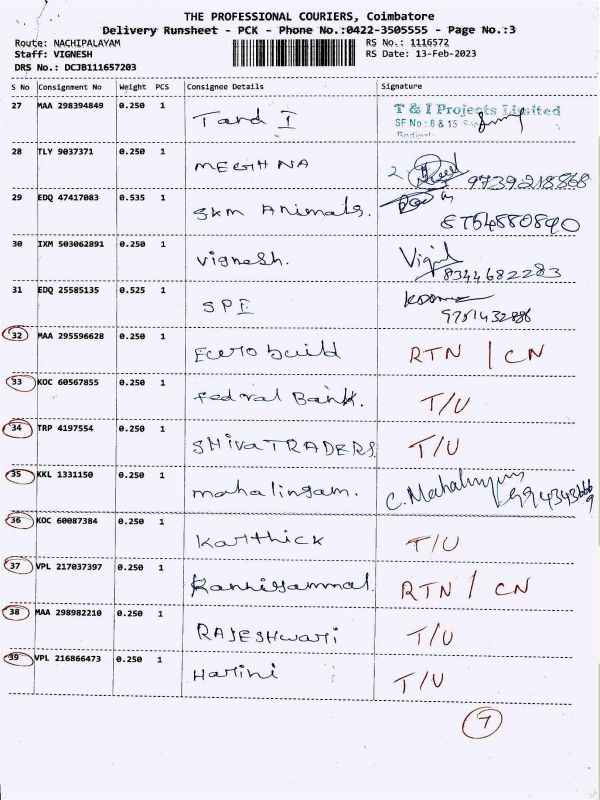 THE PROFESSIONAL COURIERS, Coimbatore
Delivery Runsheet - PCK - Phone No.:0422-3505555 - Page No.:3
Route: NACHIPALAYAM RS No.: 1116572
Staff: VIGNESH RS Date: 13-Feb-2023
DRS No.: DCJB111657203
S No Consignment No Weight PCS Consignee Details Signature
27 MAA 298394849 0.250 1 T and I T & I Projects Limited
SF No : 6 & 15
28 TLY 9037371 0.250 1 MEGHNA 9739218868
29 EDQ 47417083 0.535 1 SKM Animals. 8754880890
30 IXM 503062891 0.250 1 Vignesh. 8344682283
31 EDQ 25585135 0.525 1 SPE 9751432886
32 MAA 295596628 0.250 1 build RTN / CN
33 KOC 60567855 0.250 1 Fedral Bank. T/U
34 TRP 4197554 0.250 1 SHIVA TRADERS T/U
35 KKL 1331150 0.250 1 mahalingam. C. Mahalingam
36 KOC 60087384 0.250 1 Karthick T/U
37 VPL 217037397 0.250 1 Kannigammal RTN / CN
38 MAA 298982210 0.250 1 RAJESHwari T/U
39 VPL 216866473 0.250 1 Harini T/U
7